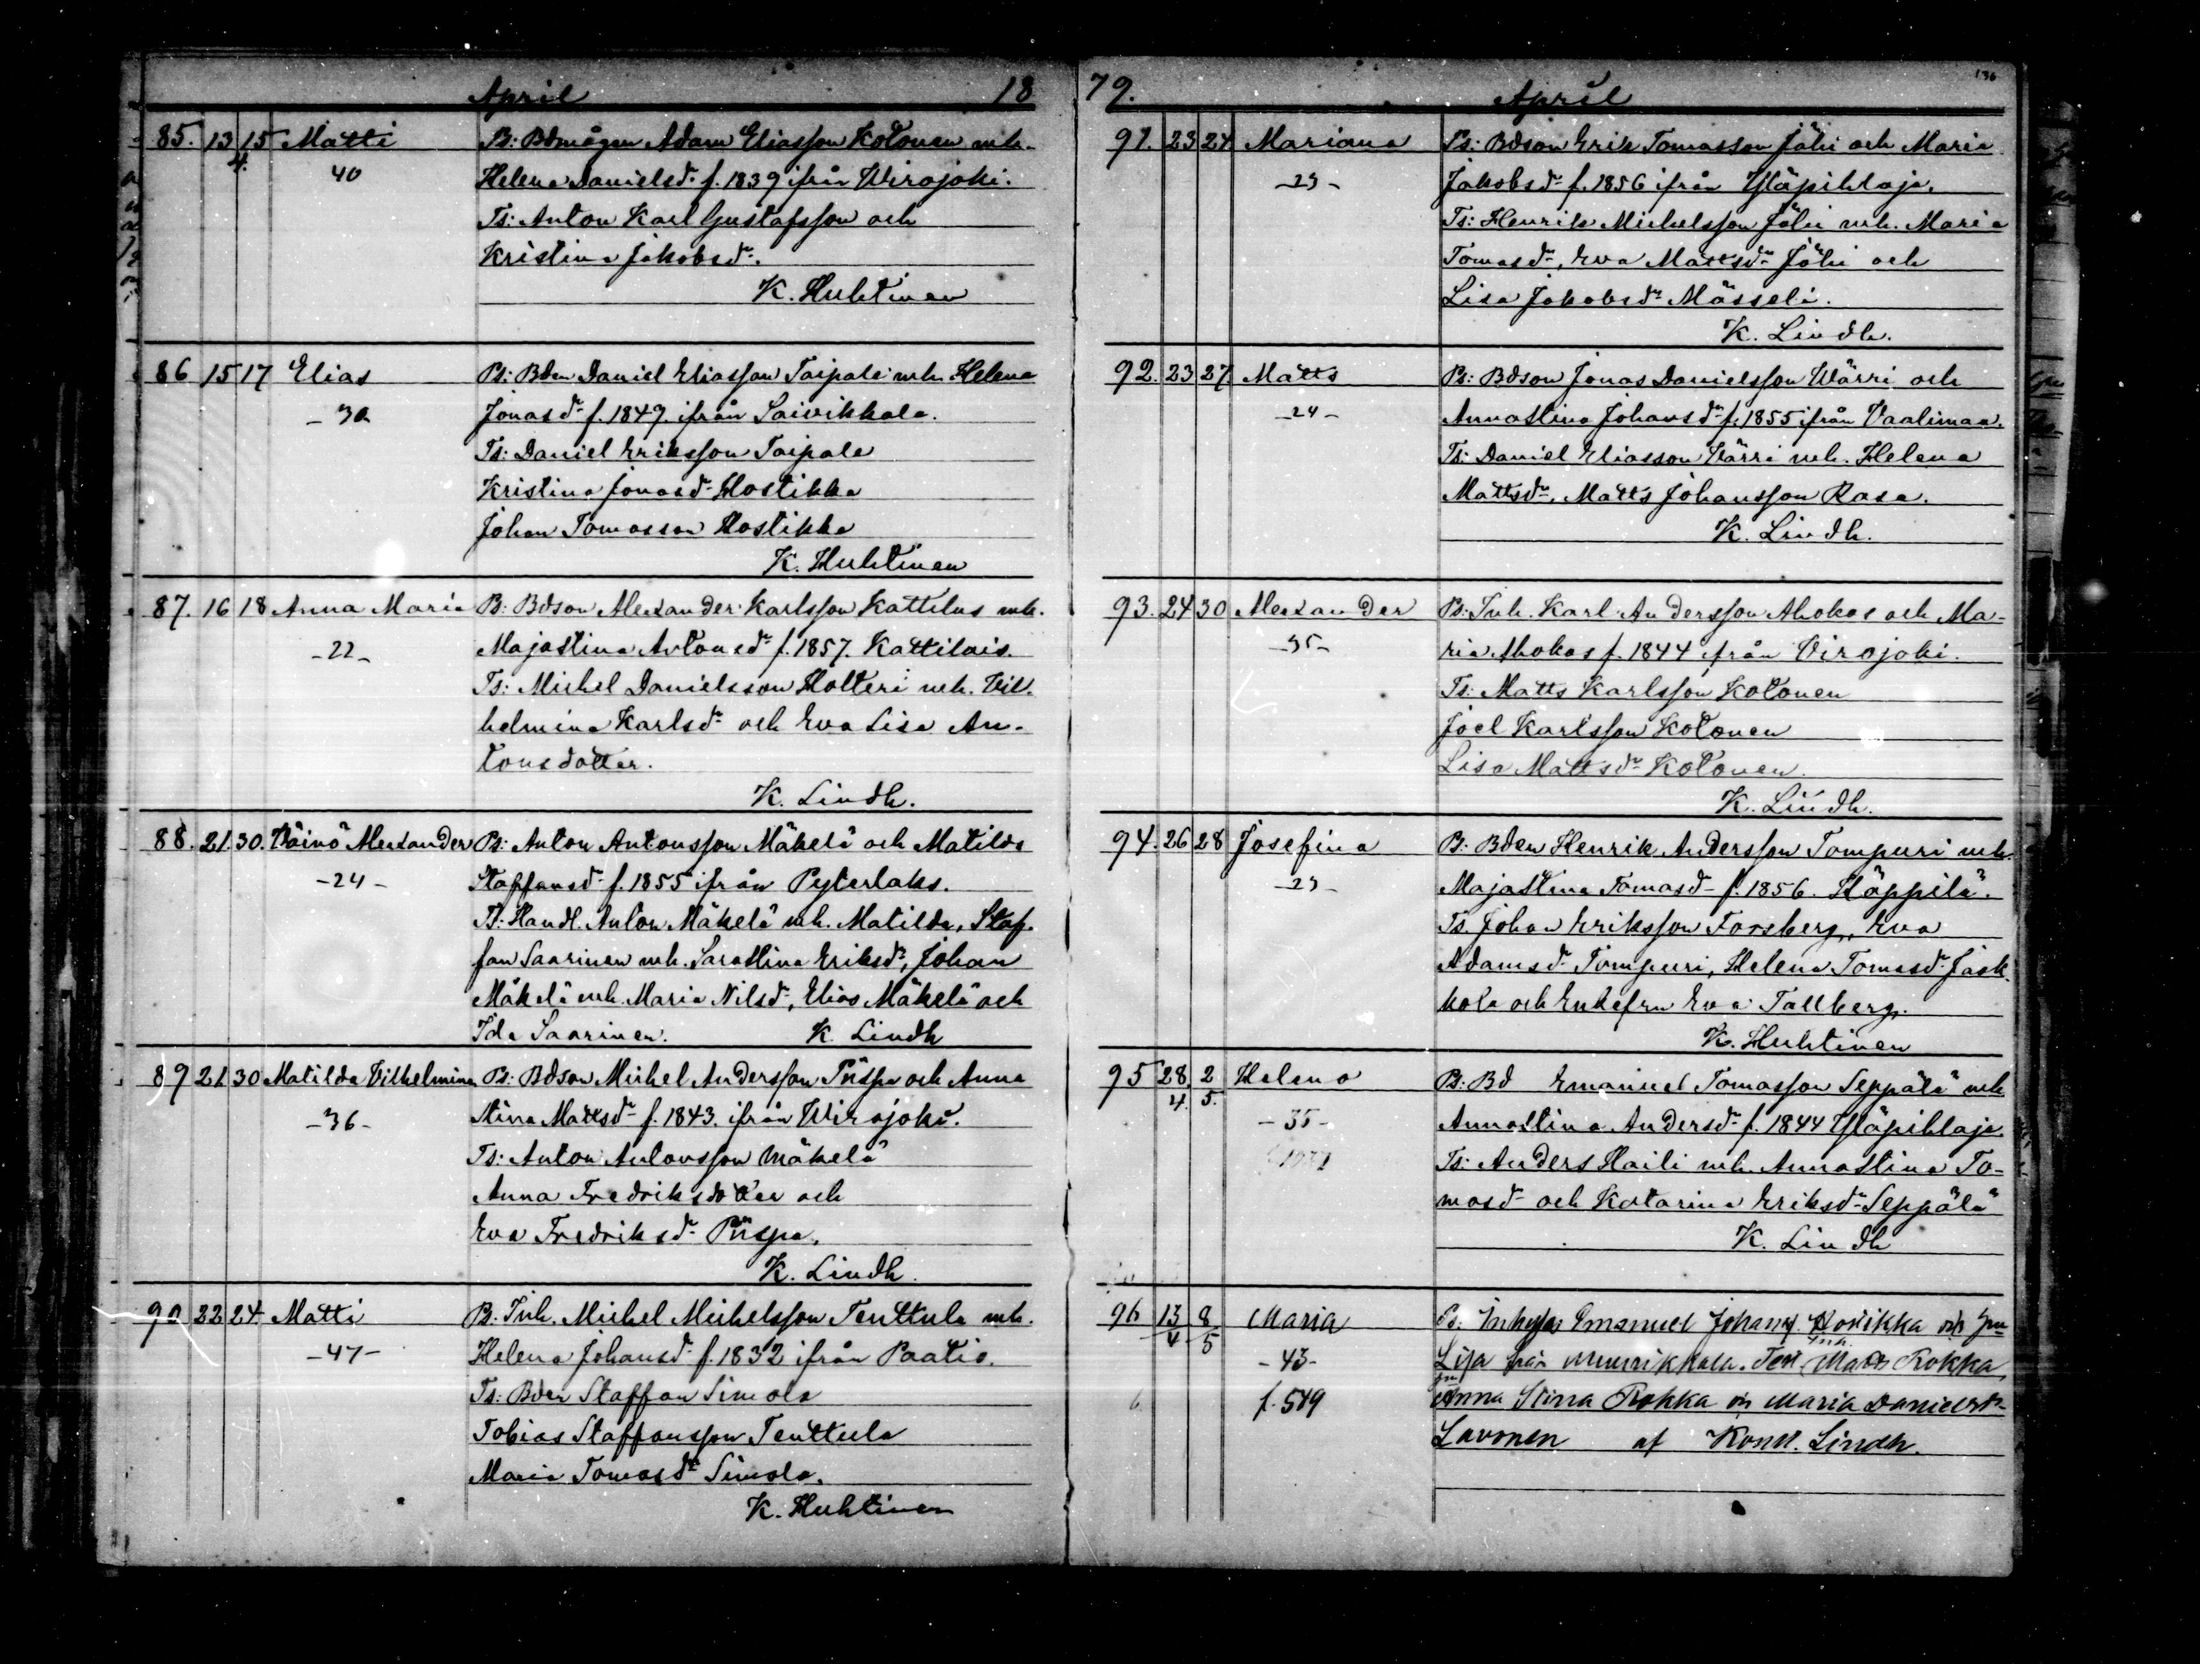 April 18
85. 13 15 Matti Bs: Bdmågen Adam Eliasson Kotonen mh.
4. 40 Helena Danielsd. f. 1839 ifrån Wirojoki.
Ts: Anton Karl Gustafsson och
Kristina Jakobsd.
K. Huhtinen
86 15 17 Elias Bs: Bden Daniel Eliasson Taipale mh. Helena
-30 Jonasd. f. 1849. ifrån Saivikkala.
Ts: Daniel Eriksson Taipale
Kristina Jonasd. Hostikka
Johan Tomasson Hostikka
K. Huhtinen
87. 16 18 Anna Maria B: Bdson Alexander Karlsson Kattilus mh.
-22- Majastina Antonsd. f. 1857. Kattilais.
Ts: Michel Danielsson Holteri mh. Vil-
helmina Karlsd. och Eva Lisa An-
tonsdotter.
K. Lindh.
88. 21. 30. Väinö Alexander Bs: Anton Antonsson Mäkelä och Matilda
-24- Staffansd. f. 1855 ifrån Pyterlaks.
Ts: Handl. Anton Mäkelä mh. Matilda, Staf-
fan Saarinen mh. Sarastina Eriksd., Johan
Mäkelä mh. Maria Nilsd., Elias Mäkelä och
Ida Saarinen. K. Lindh
89 21. 30 Matilda Vilhelmina Bs: Bdson Michel Andersson Piispa och Anna
-36- Stina Mattsd. f. 1843. ifrån Wirojoki.
Ts: Anton Antonsson Mäkelä
Anna Fredriksdotter och
Eva Fredriksd. Piispa.
K. Lindh.
90 22 24 Matti B. Inh. Michel Michelsson Tenttula mh.
-47- Helena Johansd. f. 1832 ifrån Paatio.
Ts: Bden Staffan Simola
Tobias Staffansson Tenttula
Maria Tomasd. Simola.
K. Huhtinen
79. April 136
91. 23 24 Mariana Bs: Bdson Erik Tomasson Jähi och Maria
-23- Jakobsd. f. 1856 ifrån Yläpihlaja.
Ts: Henrik Michelsson Jähi mh. Maria
Tomasd., Eva Mattsd. Jähi och
Lisa Jakobsd. Mässeli.
K. Lindh.
92. 23 27 Matts Bs: Bdson Jonas Danielsson Wärri och
-24- Annastina Johansd. f. 1855 ifrån Vaalimaa.
Ts: Daniel Eliasson Wärri mh. Helena
Mattsd., Matts Johansson Rasa.
K. Lindh.
93. 24 30 Alexander Bs: Inh. Karl Andersson Ahokas och Ma-
-35- ria Ahokas f. 1844 från Virojoki.
Ts: Matts Karlsson Kotonen
Joel Karlsson Kotonen
Lisa Mattsd. Kotonen.
K. Lindh.
94. 26 28 Josefina B. Bden Henrik Andersson Tompuri mh.
-23- Majastina Tomasd. f. 1856. Häppilä.
Ts. Johan Eriksson Forsberg, Eva
Adamsd. Tompuri, Helena Tomasd. Jäsk-
kola och Enkefru Eva Tallberg.
K. Huhtinen
95 28 2 Helena Bs: Bd Emanuel Tomasson Seppälä mh
4. 5. -35- Annastina Andersd. f. 1844 Yläpihlaja.
Ts: Anders Haili mh. Annastina To-
masd. och Katarina Eriksd. Seppälä
K. Lindh
96 13 8 Maria Bs. Inhyses Emanuel Johans. Hostikka och
4 5 -43- Lisa från
f. 549 Anna Stina Rokka o. Maria Danielsd.
Lavonen af Konst. Lindh.